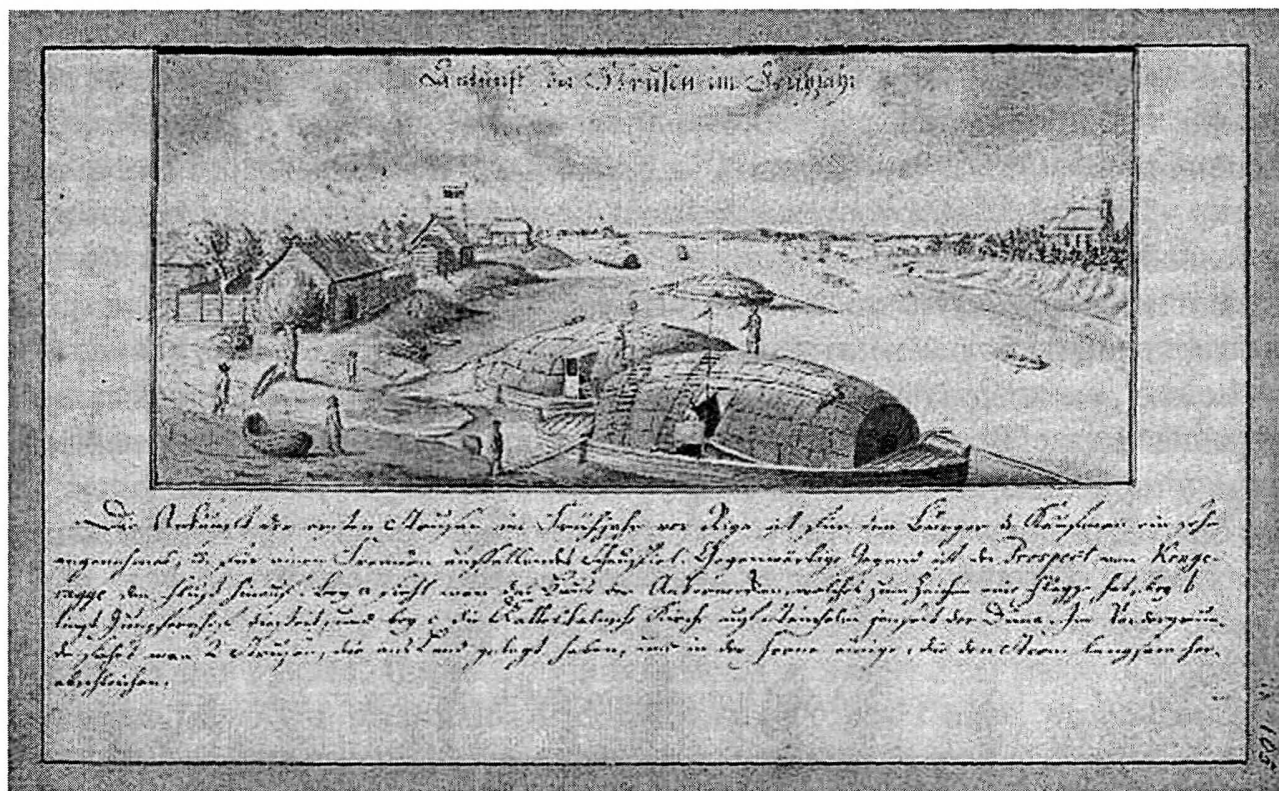 Ankunft der Strusen im Frühjahr
Die Ankunft der ersten Strusen im Frühjahr vor Riga ist für den Bürger & Kaufmann ein sehr
angenehmes, & für einen Fremden auffallendes Schauspiel. Gegenwärtige Gegend ist der Prospect von Kenge-
ragge den Fluß hinauf. bey a sieht man das Haus der Ankerneeken, welches zum Zeichen eine Flagge hat, bey b
liegt und bey c die Catholikalnsche Kirche auf Steinholm jenseit der Düna. Im Vordergrun-
de sieht man 2 Strusen, die ans Land gelegt haben, und in der Ferne einige, die den Strom langsam her-
abschleichen.
105